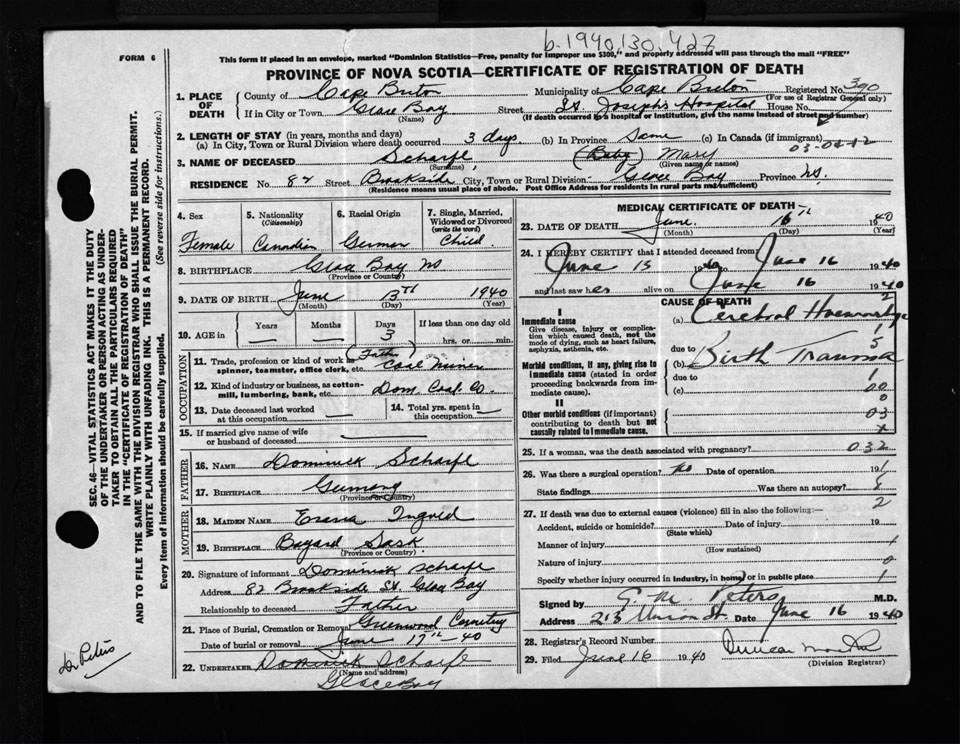 b.1940.130.427
FORM 6
This form if placed in an envelope, marked "Dominion Statistics—Free, penalty for improper use $300," and properly addressed will pass through the mail "FREE"
PROVINCE OF NOVA SCOTIA—CERTIFICATE OF REGISTRATION OF DEATH
1. PLACE OF DEATH
County of Cape Breton Municipality of Cape Breton Registered No. 390
(For use of Registrar General only)
If in City or Town Glace Bay Street St. Joseph's Hospital House No.
(Name) (If death occurred in a hospital or institution, give the name instead of street and number)
2. LENGTH OF STAY (in years, months and days)
(a) In City, Town or Rural Division where death occurred 3 days (b) In Province Same (c) In Canada (if immigrant)
3. NAME OF DECEASED Scharfe (Baby) Mary
(Surname) (Given name or names)
RESIDENCE No. 82 Street Brookside City, Town or Rural Division Glace Bay Province N.S.
(Residence means usual place of abode. Post Office Address for residents in rural parts not sufficient)
4. Sex Female
5. Nationality (Citizenship) Canadian
6. Racial Origin German
7. Single, Married, Widowed or Divorced (write the word) Child
8. BIRTHPLACE Glace Bay NS
(Province or Country)
9. DATE OF BIRTH June 13th 1940
(Month) (Day) (Year)
10. AGE in Years Months Days 3 If less than one day old hrs. or min.
OCCUPATION
11. Trade, profession or kind of work as spinner, teamster, office clerk, etc. (Father) Coal Miner
12. Kind of industry or business, as cotton-mill, lumbering, bank, etc. Dom. Coal Co.
13. Date deceased last worked at this occupation
14. Total yrs. spent in this occupation
15. If married give name of wife or husband of deceased
FATHER
16. NAME Dominick Scharfe
17. BIRTHPLACE Germany
(Province or Country)
MOTHER
18. MAIDEN NAME
19. BIRTHPLACE Bayard Sask
(Province or Country)
20. Signature of informant Dominick Scharfe
Address 82 Brookside St. Glace Bay
Relationship to deceased Father
21. Place of Burial, Cremation or Removal Greenwood Cemetery
Date of burial or removal June 17th-40
22. UNDERTAKER Dominick Scharfe
(Name and address)
Glace Bay
MEDICAL CERTIFICATE OF DEATH
23. DATE OF DEATH June 16th 1940
(Month) (Day) (Year)
24. I HEREBY CERTIFY that I attended deceased from
June 15 1940 to June 16 1940
and last saw her alive on June 16 1940
CAUSE OF DEATH
I
Immediate cause
Give disease, injury or complication which caused death, not the mode of dying, such as heart failure, asphyxia, asthenia, etc.
(a) Cerebral Haemorrhage
due to
Morbid conditions, if any, giving rise to immediate cause (stated in order proceeding backwards from immediate cause).
(b) Birth Trauma
due to
(c)
II
Other morbid conditions (if important) contributing to death but not causally related to immediate cause.
25. If a woman, was the death associated with pregnancy? 032
26. Was there a surgical operation? No Date of operation 19
State findings Was there an autopsy?
27. If death was due to external causes (violence) fill in also the following:—
Accident, suicide or homicide? Date of injury 19
(State which)
Manner of injury
(How sustained)
Nature of injury
Specify whether injury occurred in industry, in home, or in public place
Signed by G. M. Peters M.D.
Address 213 Union St. Date June 16 1940
28. Registrar's Record Number
29. Filed June 16 1940
(Division Registrar)
SEC. 46—VITAL STATISTICS ACT MAKES IT THE DUTY OF THE UNDERTAKER OR PERSON ACTING AS UNDERTAKER TO OBTAIN ALL THE PARTICULARS REQUIRED IN THE "CERTIFICATE OF REGISTRATION OF DEATH"
AND TO FILE THE SAME WITH THE DIVISION REGISTRAR WHO SHALL ISSUE THE BURIAL PERMIT.
WRITE PLAINLY WITH UNFADING INK. THIS IS A PERMANENT RECORD.
Every item of information should be carefully supplied. (See reverse side for instructions.)
Dr Peters